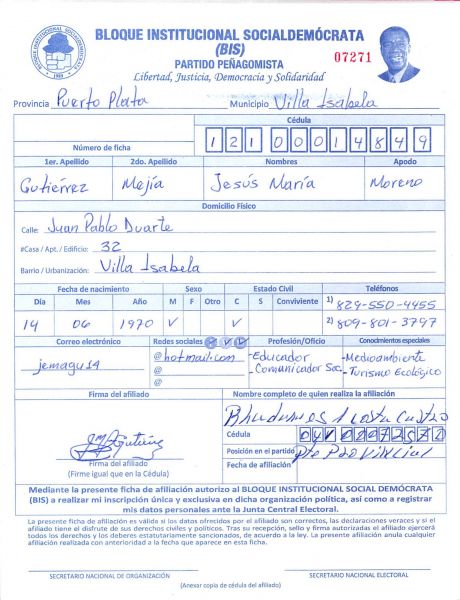 BLOQUE INSTITUCIONAL SOCIALDEMÓCRATA
(BIS)
07271
PARTIDO PEÑAGOMISTA
Libertad, Justicia, Democracia y Solidaridad
Provincia Puerto Plata Municipio Villa Isabela
Cédula
Número de ficha 121 0001484 9
1er. Apellido 2do. Apellido Nombres Apodo
Gutiérrez Mejía Jesús María Moreno
Domicilio Físico
Calle: Juan Pablo Duarte
#Casa / Apt. / Edificio: 32
Barrio / Urbanización: Villa Isabela
Fecha de nacimiento Sexo Estado Civil Teléfonos
Día Mes Año M F Otro C S Conviviente 1) 829-550-4455
14 06 1970 V V 2) 809-801-3797
Correo electrónico Redes sociales Profesión/Oficio Conocimientos especiales
jemagu14 @hotmail.com -Educador -Medioambiente
@ -Comunicador Soc. -Turismo Ecológico
@
Firma del afiliado Nombre completo de quien realiza la afiliación
Cédula
Posición en el partido Pte Provincial
Firma del afiliado Fecha de afiliación
(Firme igual que en la Cédula)
Mediante la presente ficha de afiliación autorizo al BLOQUE INSTITUCIONAL SOCIAL DEMÓCRATA
(BIS) a realizar mi inscripción única y exclusiva en dicha organización política, así como a registrar
mis datos personales ante la Junta Central Electoral.
La presente ficha de afiliación es válida si los datos ofrecidos por el afiliado son correctos, las declaraciones veraces y si el
afiliado tiene el disfrute de sus derechos civiles y políticos. Tras su recepción, sello y firma autorizada el afiliado ejercerá
todos los derechos y los deberes estatutariamente sancionados, de acuerdo a la ley. La presente afiliación anula cualquier
afiliación realizada con anterioridad a la fecha que aparece en esta ficha.
SECRETARIO NACIONAL DE ORGANIZACIÓN SECRETARIO NACIONAL ELECTORAL
(Anexar copia de cédula del afiliado)